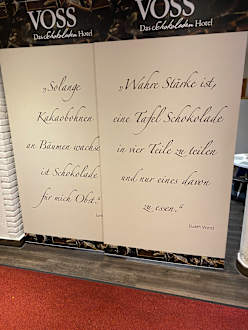 VOSS
Das Schokoladen Hotel
„Solange
Kakaobohnen
an Bäumen wachsen
ist Schokolade
für mich Obst.“
VOSS
Das Schokoladen Hotel
„Wahre Stärke ist,
eine Tafel Schokolade
in vier Teile zu teilen
und nur eines davon
zu essen.“
Judith Viorst